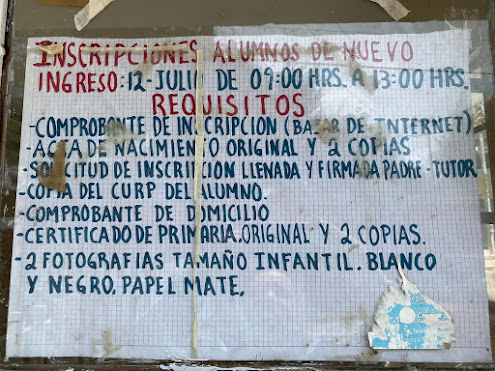 INSCRIPCIONES ALUMNOS DE NUEVO
INGRESO: 12-JULIO DE 09:00 HRS. A 13:00 HRS.
REQUISITOS
-COMPROBANTE DE INSCRIPCION (BAJAR DE INTERNET)
-ACTA DE NACIMIENTO ORIGINAL Y 2 COPIAS
-SOLICITUD DE INSCRIPCION LLENADA Y FIRMADA PADRE-TUTOR
-COPIA DEL CURP DEL ALUMNO.
-COMPROBANTE DE DOMICILIO
-CERTIFICADO DE PRIMARIA.ORIGINAL Y 2 COPIAS.
-2 FOTOGRAFIAS TAMAÑO INFANTIL. BLANCO
Y NEGRO. PAPEL MATE.